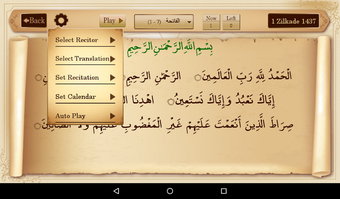 Back
Play
الفاتحة (1 - 7)
Now
1
Left
2
1 Zilkade 1437
بِسْمِ اللَّهِ الرَّحْمَٰنِ الرَّحِيمِ
Select Recitor
Select Translation
Set Recitation
Set Calendar
Auto Play
الْحَمْدُ لِلَّهِ رَبِّ الْعَالَمِينَ الرَّحْمَٰنِ الرَّحِيمِ
إِيَّاكَ نَعْبُدُ وَإِيَّاكَ نَسْتَعِينُ اهْدِنَا
صِرَاطَ الَّذِينَ أَنْعَمْتَ عَلَيْهِمْ غَيْرِ الْمَغْضُوبِ عَلَيْهِمْ وَلَا الضَّالِّينَ